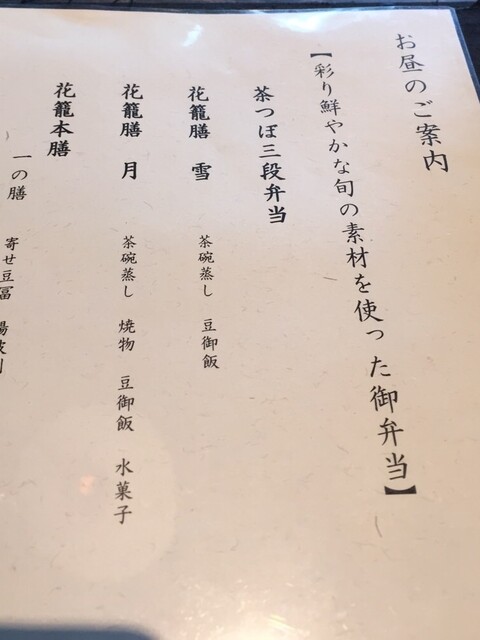 お昼のご案内
【彩り鮮やかな旬の素材を使った御弁当】
茶つぼ三段弁当
花籠膳 雪 茶碗蒸し 豆御飯
花籠膳 月 茶碗蒸し 焼物 豆御飯 水菓子
花籠本膳
一の膳 寄せ豆冨